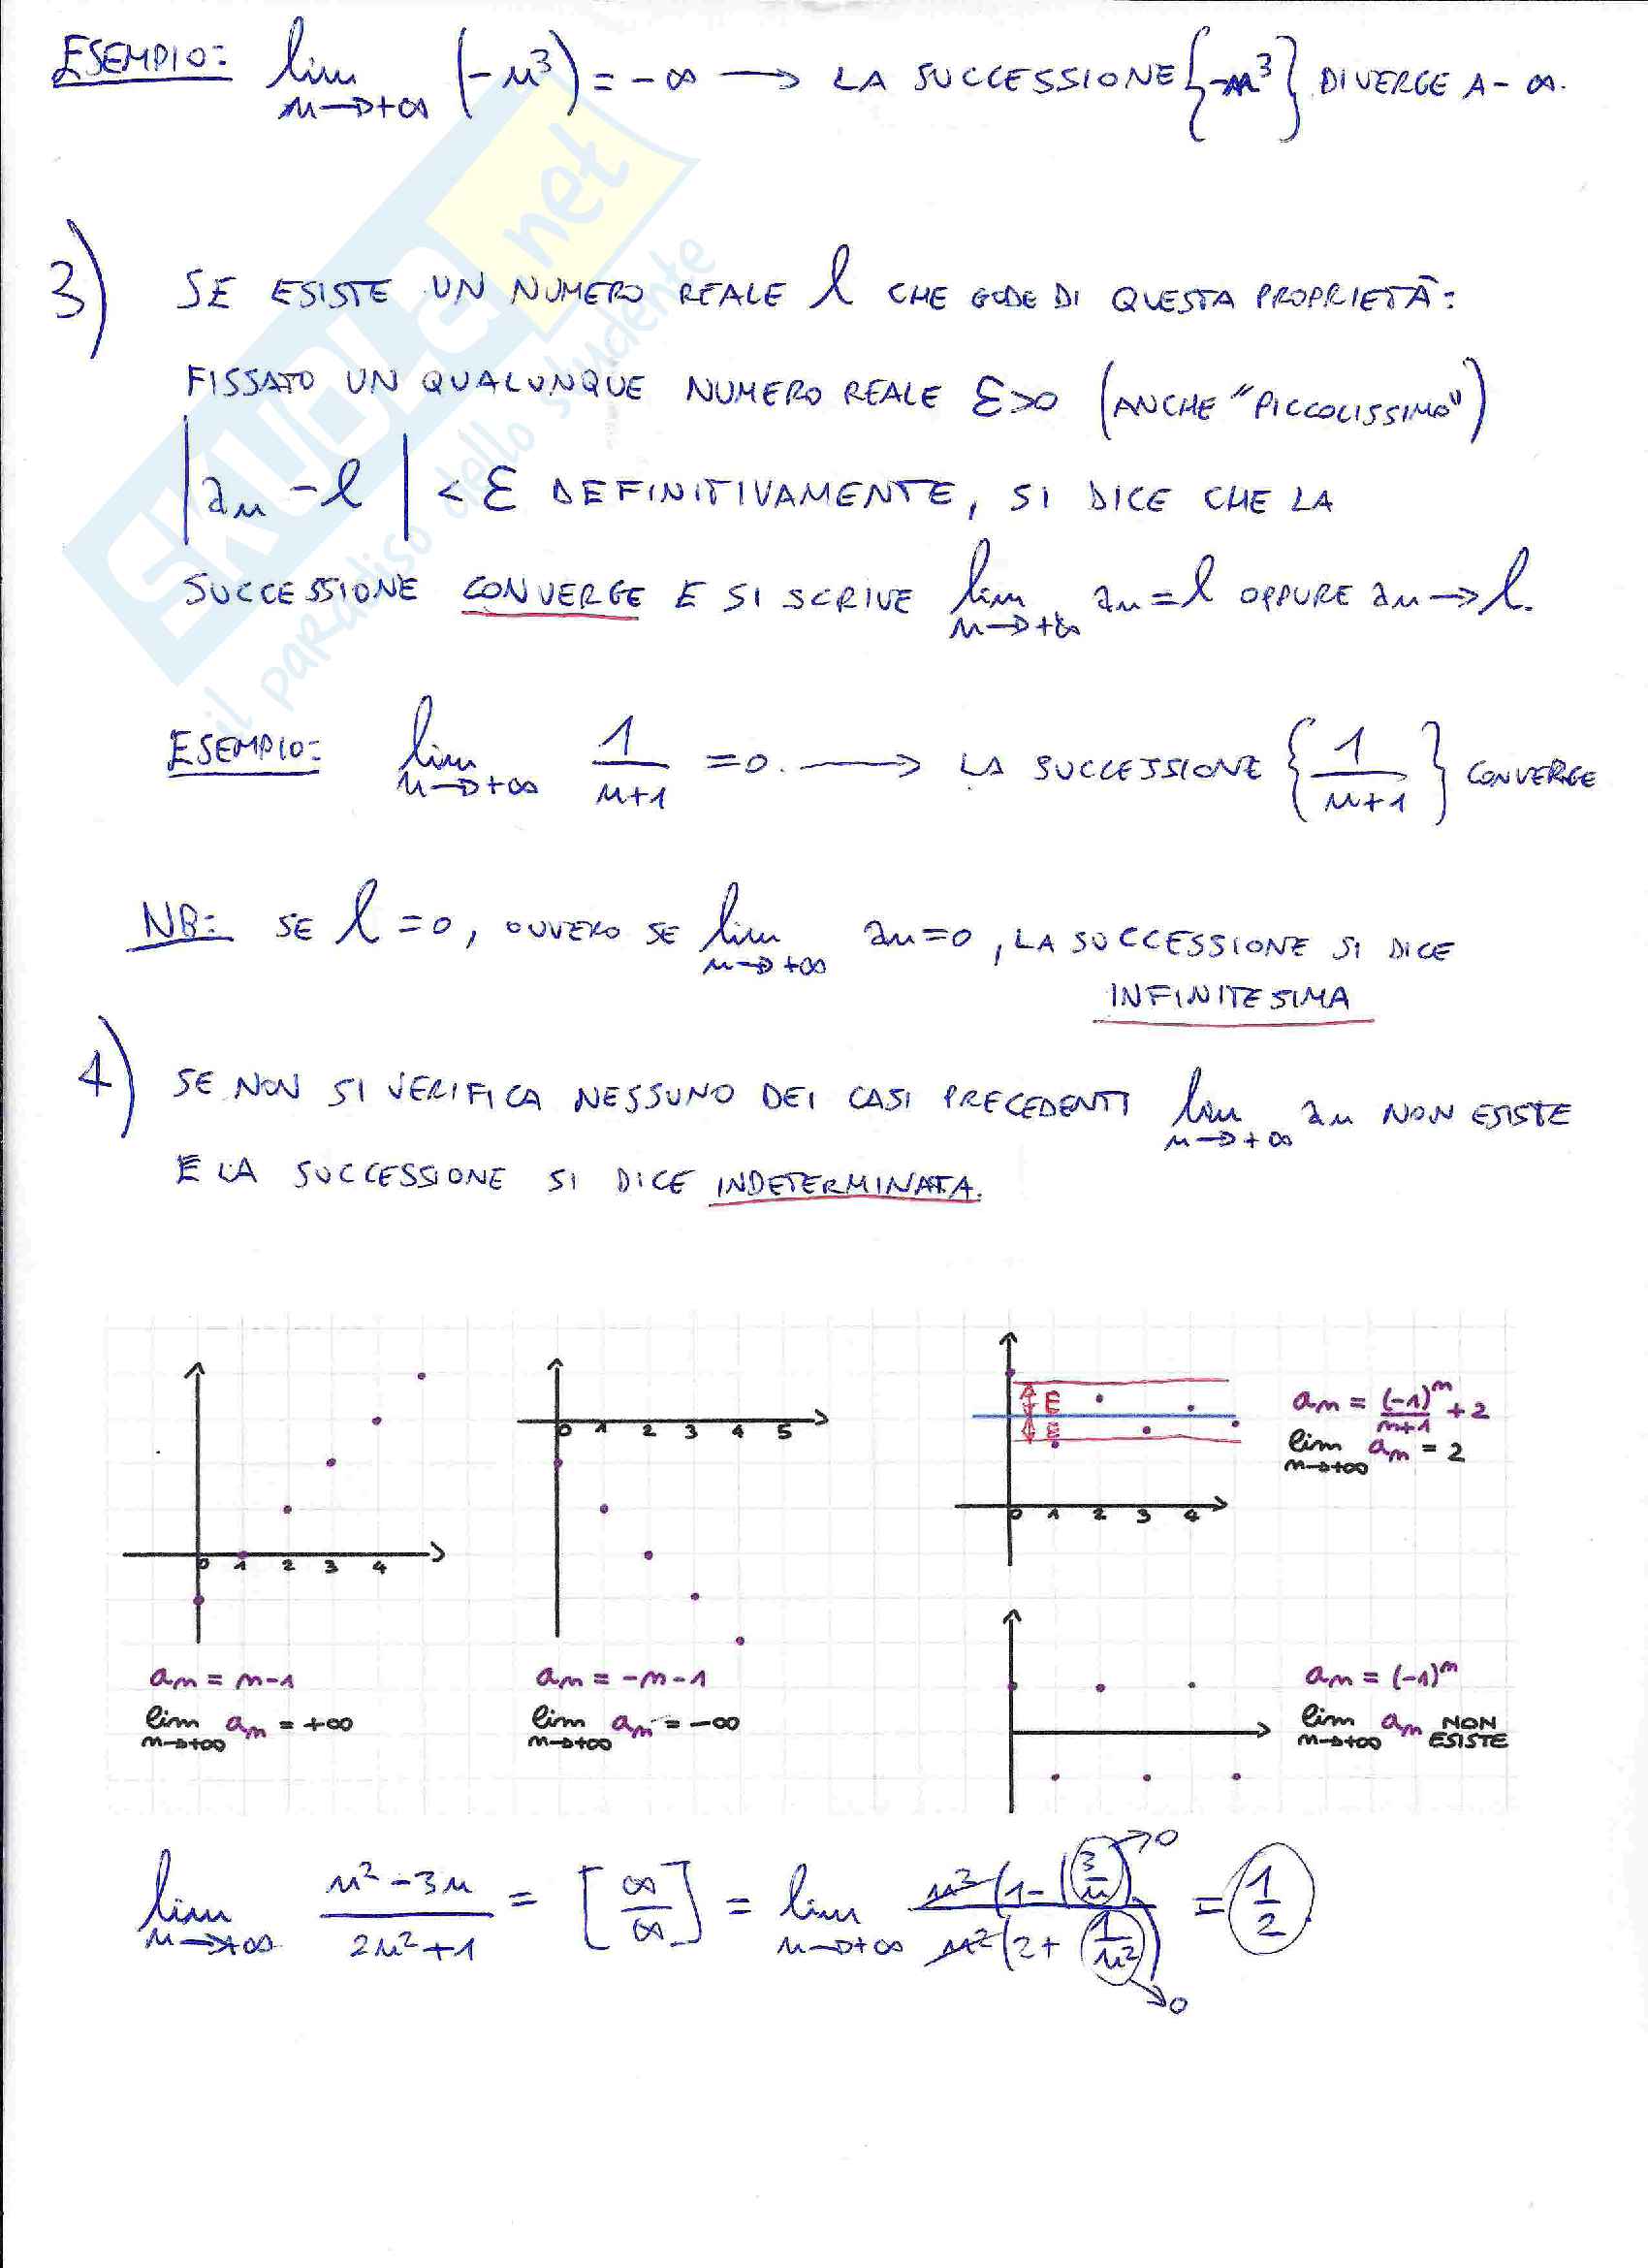 ESEMPIO: lim n→+∞ (-n³) = -∞ → LA SUCCESSIONE {-n³} DIVERGE A -∞.
3) SE ESISTE UN NUMERO REALE l CHE GODE DI QUESTA PROPRIETÀ:
FISSATO UN QUALUNQUE NUMERO REALE ε>0 (ANCHE "PICCOLISSIMO")
|an - l| < ε DEFINITIVAMENTE, SI DICE CHE LA
SUCCESSIONE CONVERGE E SI SCRIVE lim n→+∞ an = l OPPURE an → l.
ESEMPIO: lim n→+∞ 1/(n+1) = 0. → LA SUCCESSIONE {1/(n+1)} CONVERGE
NB: SE l = 0, OVVERO SE lim n→+∞ an = 0, LA SUCCESSIONE SI DICE
INFINITESIMA
4) SE NON SI VERIFICA NESSUNO DEI CASI PRECEDENTI lim n→+∞ an NON ESISTE
E LA SUCCESSIONE SI DICE INDETERMINATA.
0 1 2 3 4
an = n-1
lim n→+∞ an = +∞
0 1 2 3 4 5
an = -n-1
lim n→+∞ an = -∞
ε
ε
0 1 2 3 4
an = (-1)^n/(n+1) + 2
lim n→+∞ an = 2
an = (-1)^n
lim n→+∞ an NON ESISTE
lim n→+∞ (n²-3n)/(2n²+1) = [∞/∞] = lim n→+∞ n²(1-(3/n)→0)/n²(2+(1/n²)→0) = 1/2.
SKUOLA.net
il paradiso dello studente